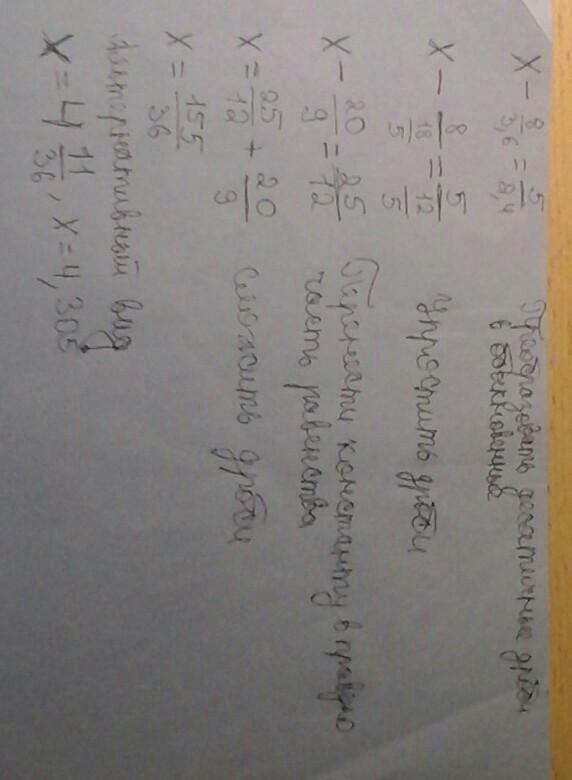 x - 8/3,6 = 5/2,4 Преобразовать десятичные дроби
в обыкновенные
x - 8/(18/5) = 5/(12/5) Упростить дроби
x - 20/9 = 25/12 Перенести константу в правую
часть равенства
x = 25/12 + 20/9 Сложить дроби
x = 155/36
Альтернативный вид
x = 4 11/36, x = 4,305